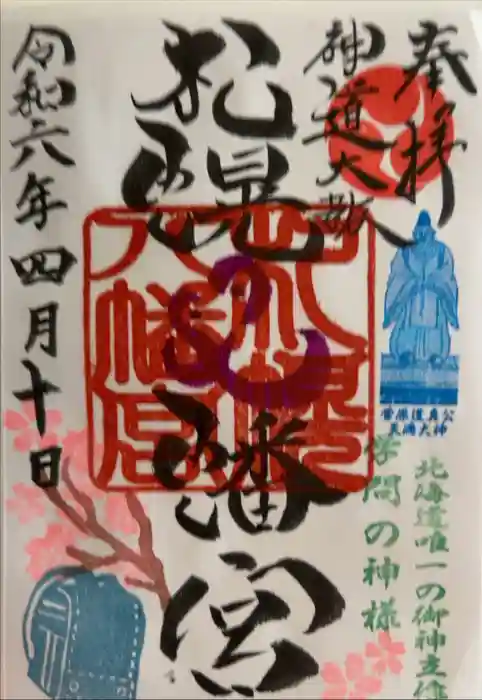 奉拝
神道大教
札幌八幡宮
令和六年四月十日
札幌
八幡宮
菅原道真公
天満大神
北海道唯一の御神
学問の神様